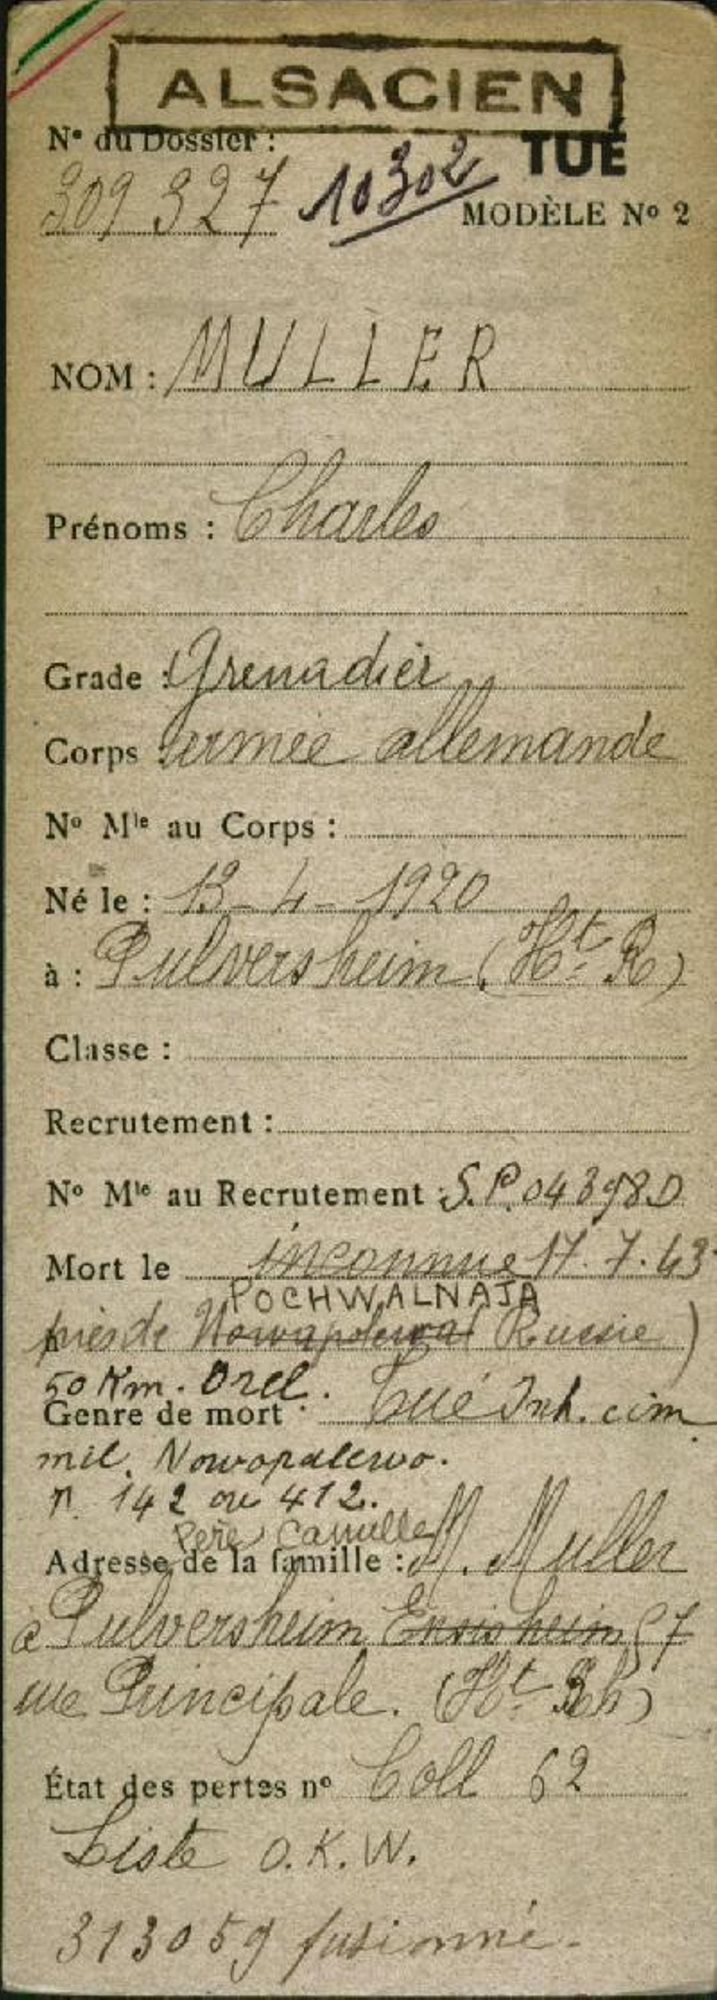 ALSACIEN
N° du Dossier :
TUÉ
309 327 10302
MODÈLE N° 2
NOM : MULLER
Prénoms : Charles
Grade : Grenadier
Corps : armée allemande
N° Mle au Corps :
Né le : 13-4-1920
à : Pulversheim (Ht. R)
Classe :
Recrutement :
N° Mle au Recrutement : S.P. 04398D
Mort le inconnue 17.7.43
POCHWALNAJA
près de Russie )
50 Km. Orel.
Genre de mort : Tué Inh. cim
mil. Nowopalewo.
n. 142 ou 412.
Père Camille
Adresse de la famille : M. Muller
à Pulversheim Ensisheim 57
rue Principale. (Ht. Rh)
État des pertes n° Coll 62
Liste O.K.W.
313059 fusionné.